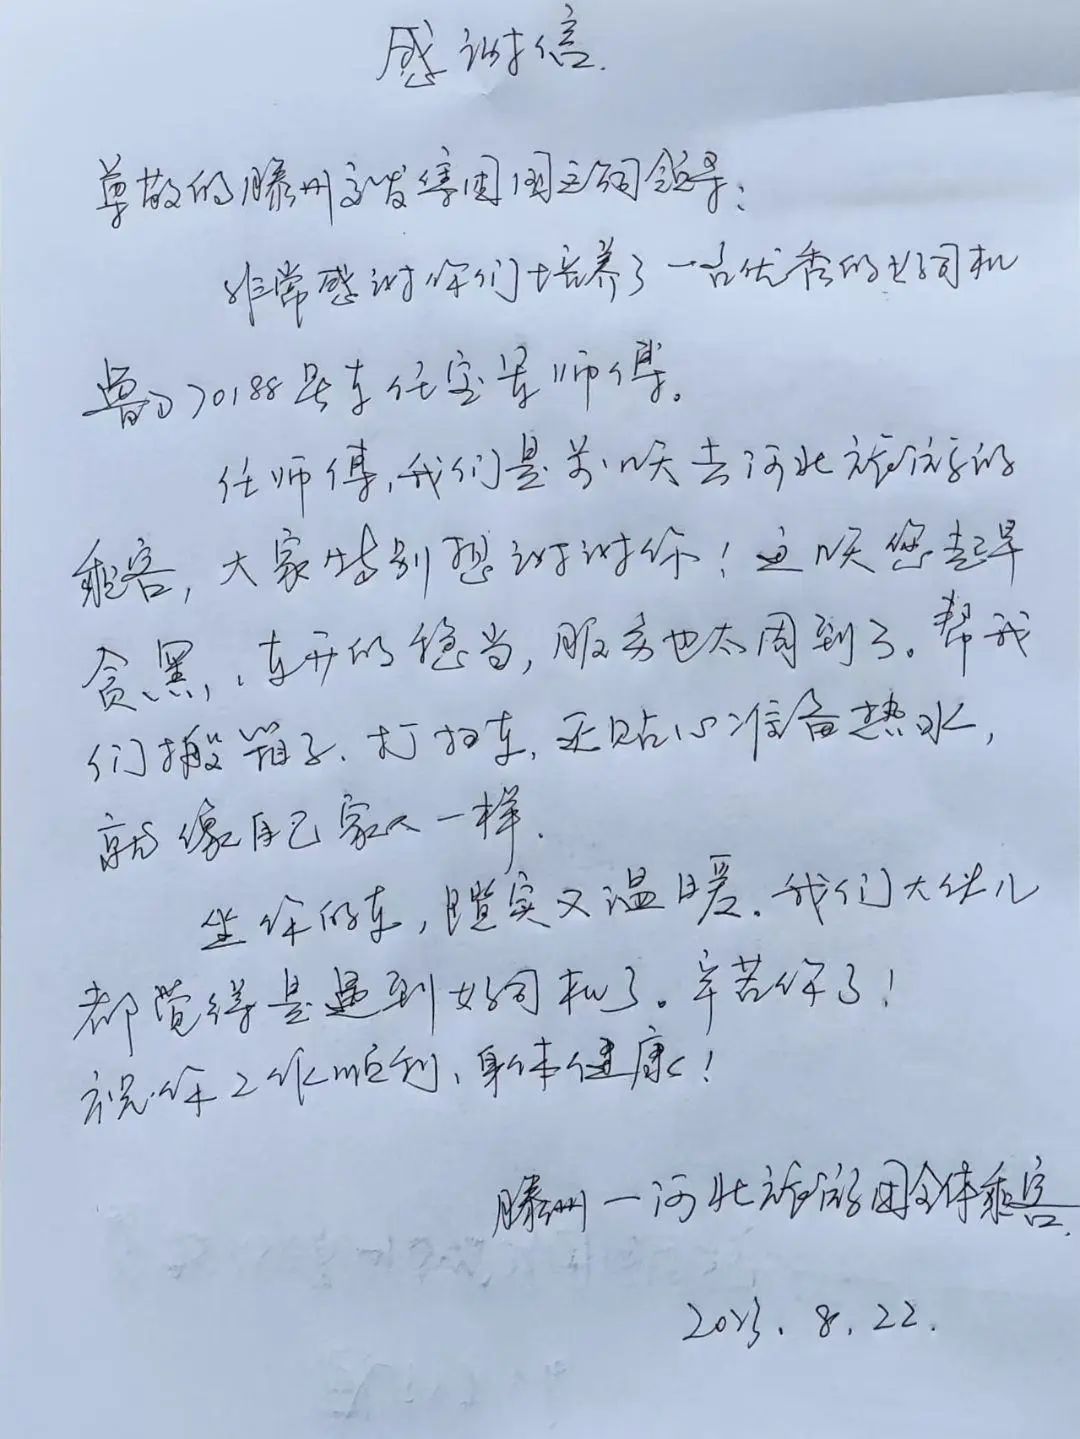 感谢信.
尊敬的滕州交发集团国运领导:
非常感谢你们培养了一名优秀的好司机
鲁D70188号车任宝景师傅。
任师傅,我们是前几天去河北旅游的
乘客,大家特别想谢谢你!这几天您起早
贪黑,车开的稳当,服务也太周到了。帮我
们搬箱子、打扫车,还贴心准备热水,
就像自己家人一样.
坐你的车,踏实又温暖.我们大伙儿
都觉得是遇到好司机了。辛苦你了!
祝你工作顺利、身体健康!
滕州一河北旅游团全体乘客.
2023.8.22.